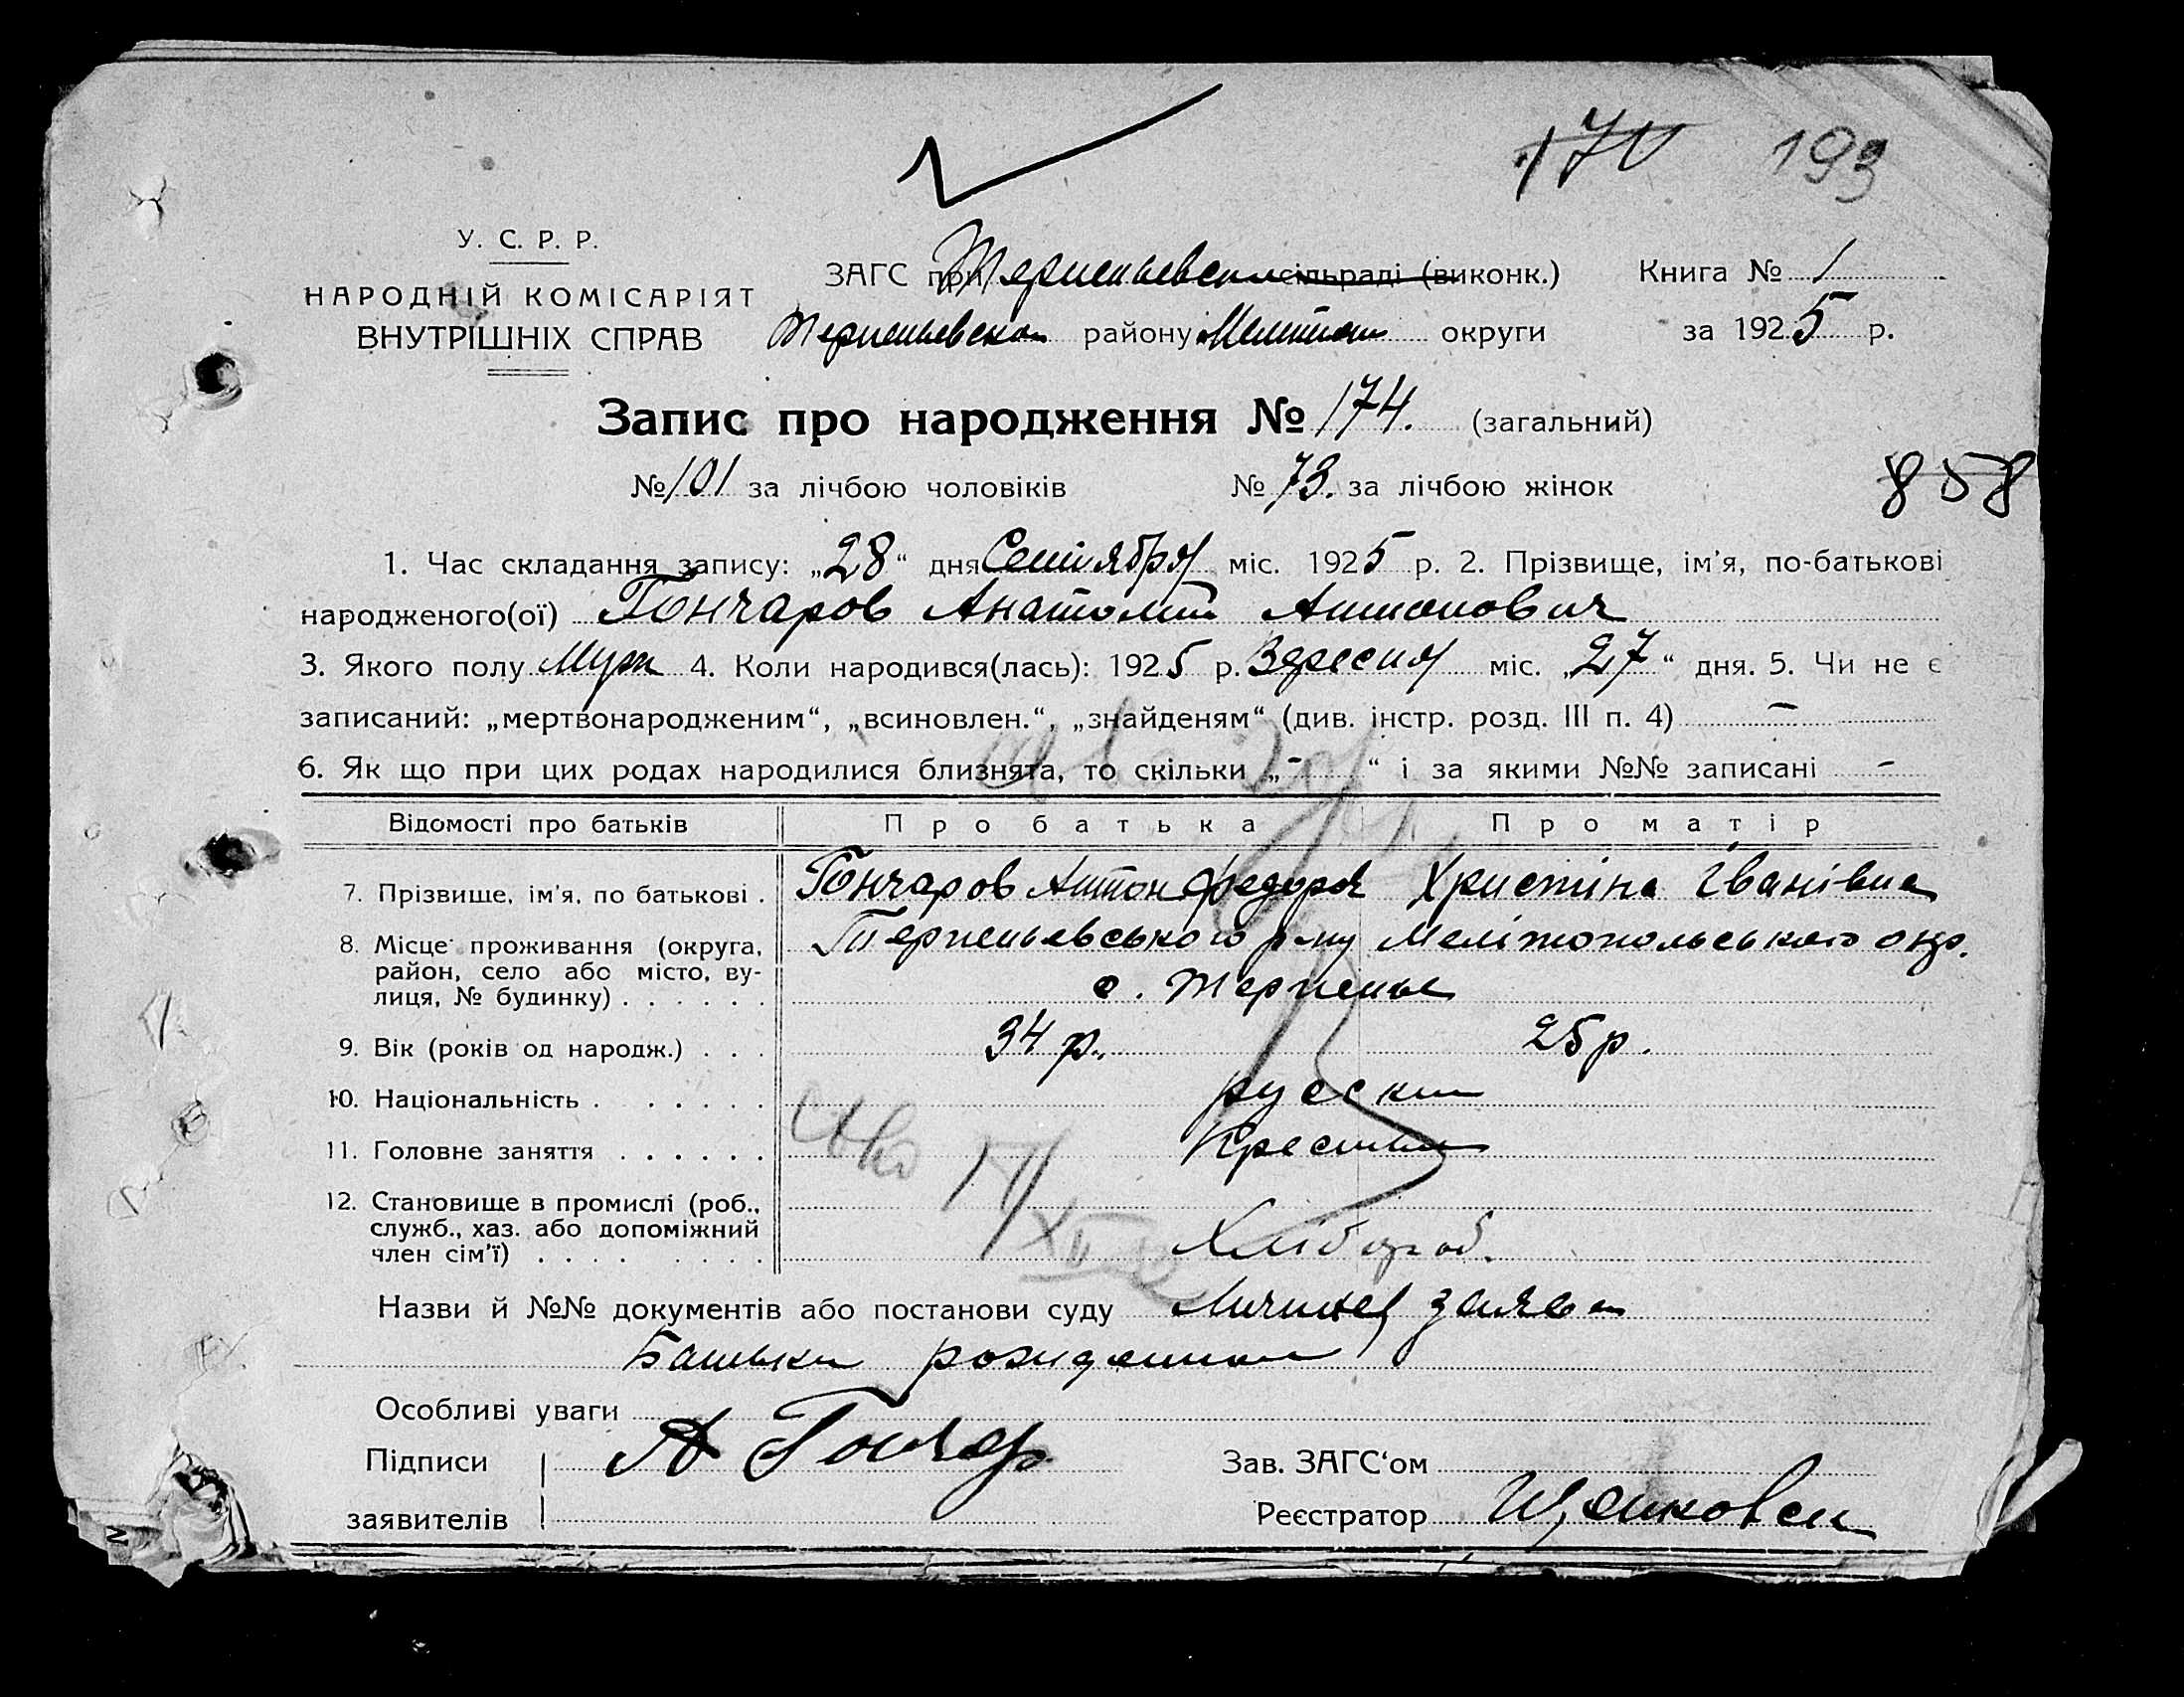 193
У. С. Р. Р.
НАРОДНІЙ КОМІСАРІЯТ
ВНУТРІШНІХ СПРАВ
ЗАГС при сільраді (виконк.) Книга № 1
району округи за 1925 р.
Запис про народження № 174. (загальний)
№ 101 за лічбою чоловіків № 73. за лічбою жінок
858
1. Час складання запису: „28“ дня Сентября міс. 1925 р. 2. Прізвище, ім'я, по-батькові
народженого(ої) Гончаров Анатолий Антонович
3. Якого полу Муж 4. Коли народився(лась): 1925 р. Вересня міс. „27“ дня. 5. Чи не є
записаний: „мертвонародженим“, „всиновлен.“, „знайденям“ (див. інстр. розд. III п. 4) –
6. Як що при цих родах народилися близнята, то скільки „-“ і за якими №№ записані -
Відомості про батьків Про батька Про матір
7. Прізвище, ім'я, по батькові . Гончаров Антон Федоров Христіна Іванівна
8. Місце проживання (округа, район, село або місто, вулиця, № будинку) . . . . . . Терпеньевського р-ну Мелітопольського окр.
с. Терпенье
9. Вік (років од народж.) . . . 34 р. 25 р.
10. Національність . . . . . . русский
11. Головне заняття . . . . . . Крестьян
12. Становище в промислі (роб., служб., хаз. або допоміжний член сім'ї) . . . . . . . . Хлібороб.
Назви й №№ документів або постанови суду Личная заява
Батька
Особливі уваги
Підписи А Гончар Зав. ЗАГС'ом
заявителів Реєстратор